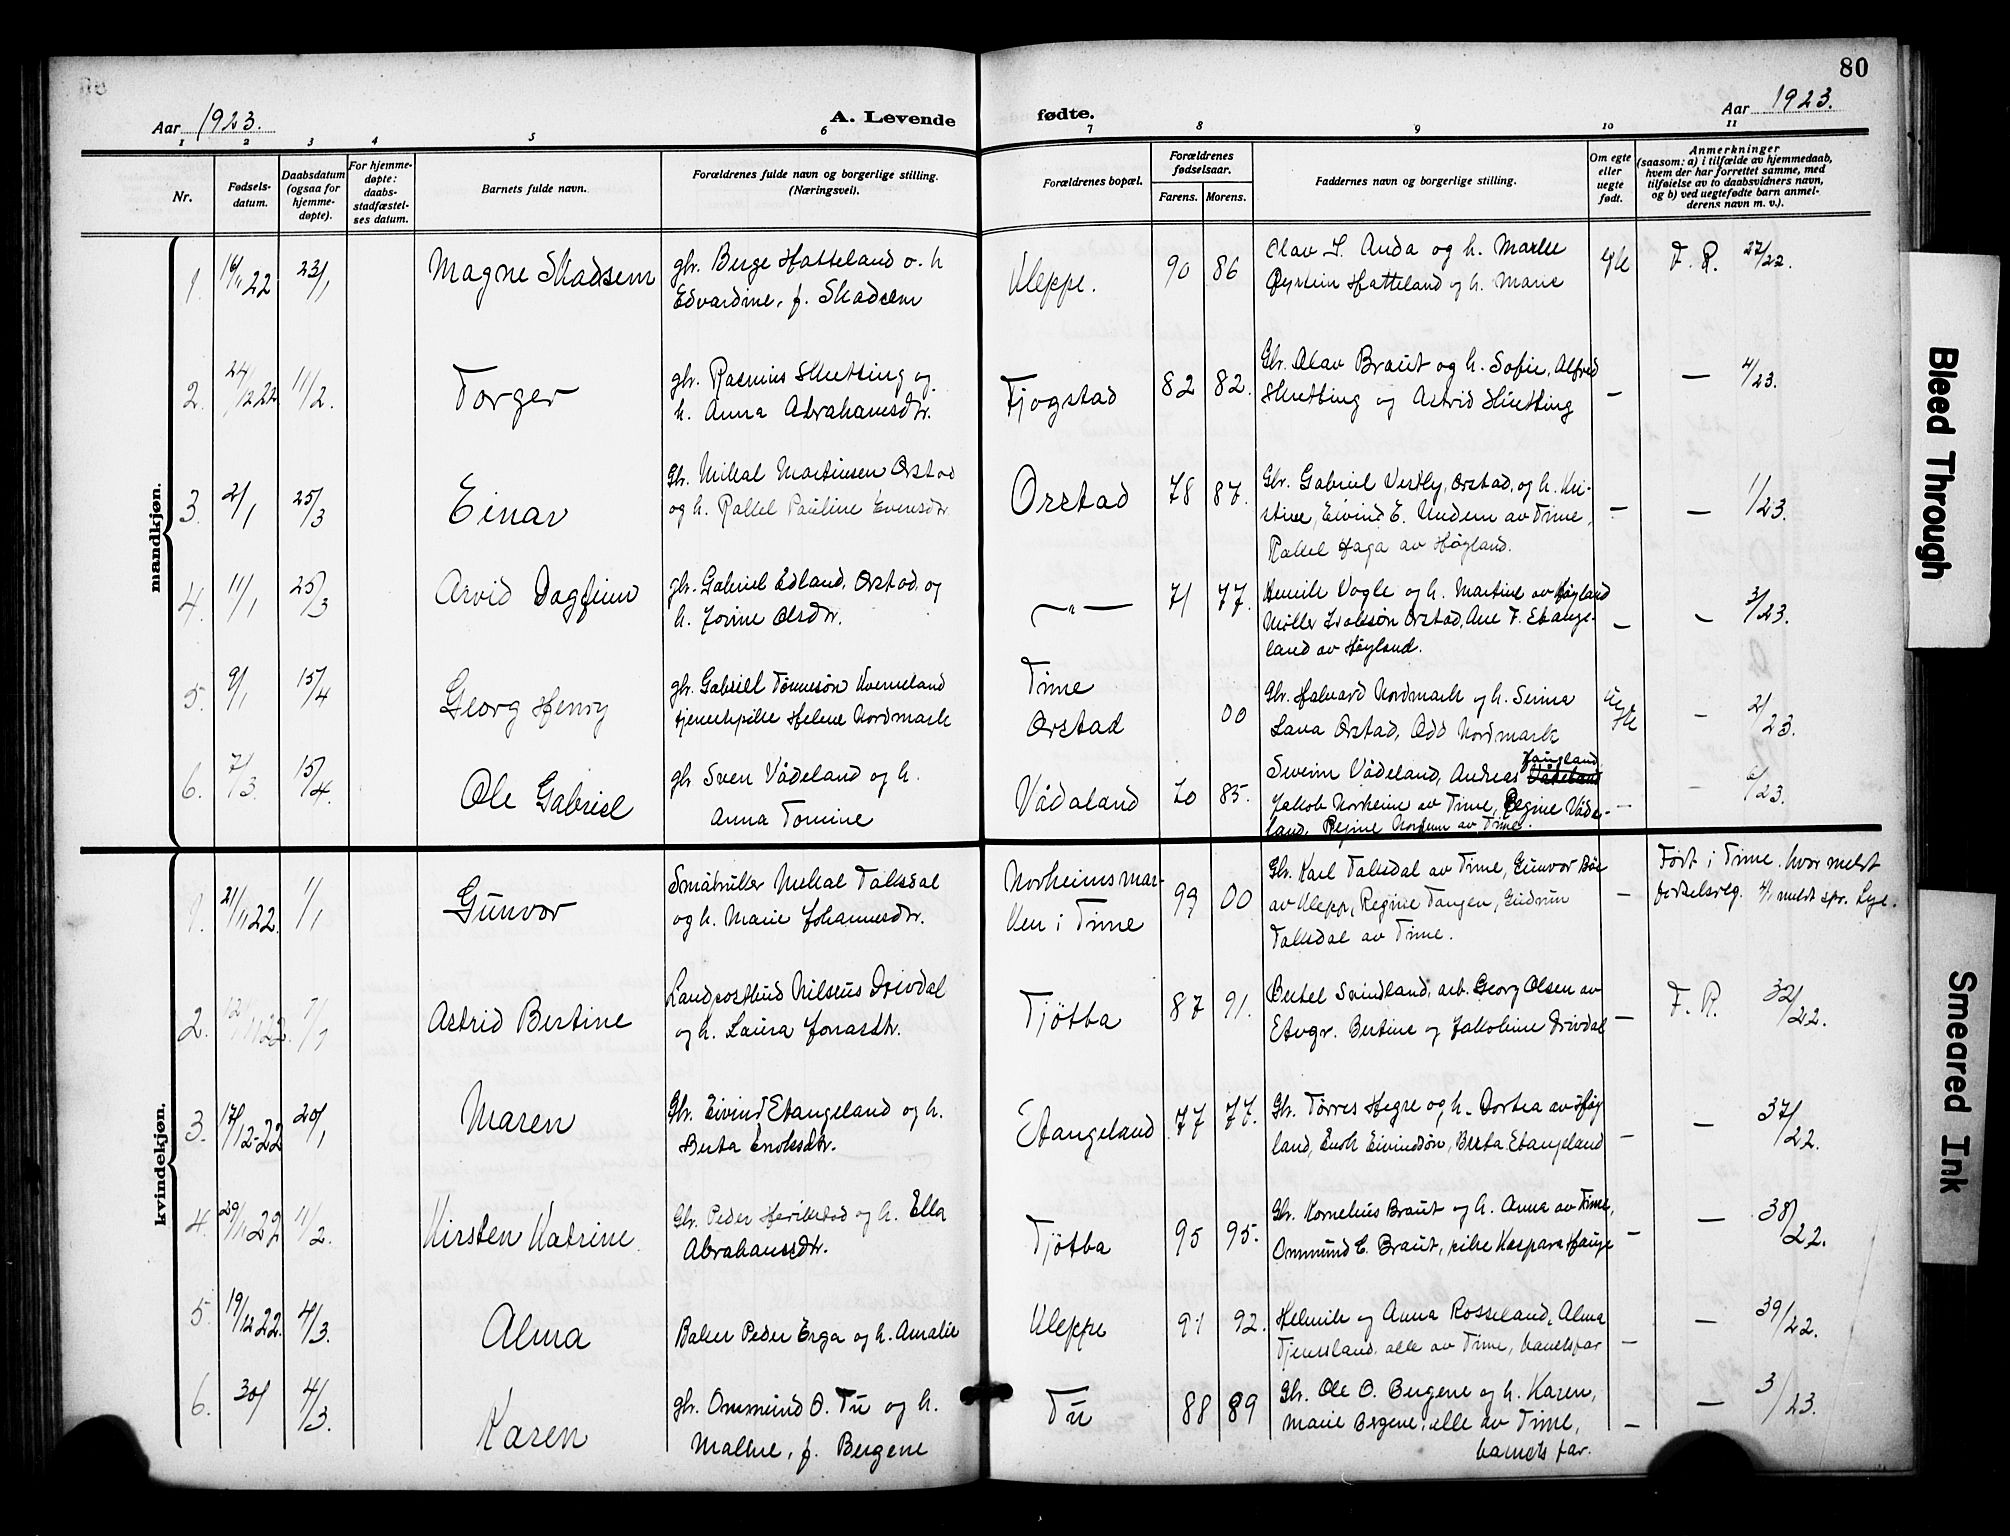 80
Aar 1923.
A. Levende fødte.
Aar 1923.
1 2 3 4 5 6 7 8 9 10 11
Nr.
Fødsels-
datum.
Daabsdatum
(ogsaa for
hjemme-
døpte).
For hjemme-
døpte:
daabs-
stadfæstel-
ses datum.
Barnets fulde navn.
Forældrenes fulde navn og borgerlige stilling.
(Næringsvei).
Forældrenes bopæl.
Forældrenes
fødselsaar.
Farens. Morens.
Faddernes navn og borgerlige stilling.
Om egte
eller
uegte
født.
Anmerkninger
(saasom: a) i tilfælde av hjemmedaab,
hvem der har forrettet samme, med
tilføielse av to daabsvidners navn,
og b) ved uegtefødte barn anmel-
derens navn m. v.).
mandkjøn.
1. 16/11 22 23/1 Magne Skadsem
gbr. Berge Hatteland o. h
Edvardine, f. Skadsem
Kleppe. 90 86
Olav I. Anda og h. Marte
Øystein Hatteland og h. Marie
F. R. 27/22.
2. 24/12 22 11/2. Torger
gbr. Rasmus Skretting og
h. Anna Abrahamsdtr.
Fjogstad 82 82.
Gbr. Olav Braut og h. Sofie, Alfred
Skretting og Astrid Skretting
— — 4/23.
3. 2/1 25/3 Einar
Gbr. Mikal Martinsen Orstad
og h. Rakel Pauline Evensdtr
Orstad 78 87.
Gbr. Gabriel Vestly, Orstad, og h. Kri-
stine, Eivind E. Undem av Time,
Rakel Haga av Høyland.
— — 1/23.
4. 11/1 25/3 Arvid Dagfinn
gbr. Gabriel Edland, Orstad, og
h. Jorine Olsdtr.
—"— 71 77.
Henrik Vagle og h. Martine av Høyland
Møller Orstad, Ane F. Etange-
land av Høyland.
— — 3/23.
5. 9/1 15/4 Georg Henry
gbr. Gabriel Tønnesøn Kverneland
tjenestepike Helene Nordmark
Time
Orstad 00
Gbr. Halvard Nordmark og h. Serina
Lava Orstad, Odd Nordmark
— 2/23.
6. 7/3. 15/4. Ole Gabriel
gbr Sven Vådeland og h.
Anna Tomine
Vådaland 70 85.
Sveinn Vådeland, Andreas Vådeland
Jakob Norheim av Time, Regine Våde-
land, Regine Norheim av Time.
— — 6/23.
kvindekjøn.
1. 21/11 22. 1/1 Gunvor
Småbruker Mikal Taksdal
og h. Marie Johannesdtr.
Norheimsmar-
ken i Time 99 00
Gbr. Karl Taksdal av Time, Gunvor Bøe
av Klepp, Regine Tangen, Gudrun
Taksdal av Time.
—
Født i Time. hvor meldt
fødselsreg. meldt spr. Lye.
2. 12/11 22. 7/1 Astrid Bertine
Landpostbud Nilseus Drivdal
og h. Laura Jonasdtr.
Tjøtta 87 91.
Bertel Svindland, arb. Georg Olsen av
Stvgr. Bertine og Jakobine Drivdal
— F. R. 32/22.
3. 17/12-22 20/1 Maren
Gbr. Eivind Etangeland og h.
Berta Enoksdtr.
Etangeland 77 77.
Gbr. Tørres Hegre og h. Dortea av Høy
land, Enok Eivindsøn, Berta Etangeland
— — 37/22.
4. 29/11 22 11/2. Kirsten Katrine.
Gbr. Peder Herikstad og h. Ella
Abrahamsdtr.
Tjøtta 95 95.
Gbr. Kornelius Braut og h. Anna av Time,
Ommund E. Braut, pike Kaspara Hauge
— — 38/22.
5. 19/12 22. 4/3. Alma
Baker Peder Erga og h. Amalie
Kleppe 91 92.
Helmik og Anna Rosseland, Alma
Tjensland. alle av Time, barnets far
— — 39/22.
6. 30/ 4/3. Karen
gbr. Ommund O. Tu og h.
Malene, f. Bergene
Tu 88 89
Gbr. Ole O. Bergene og h. Karen,
Marie Bergene, alle av Time,
barnets far.
— — 3/23.
Bleed Through
Smeared Ink